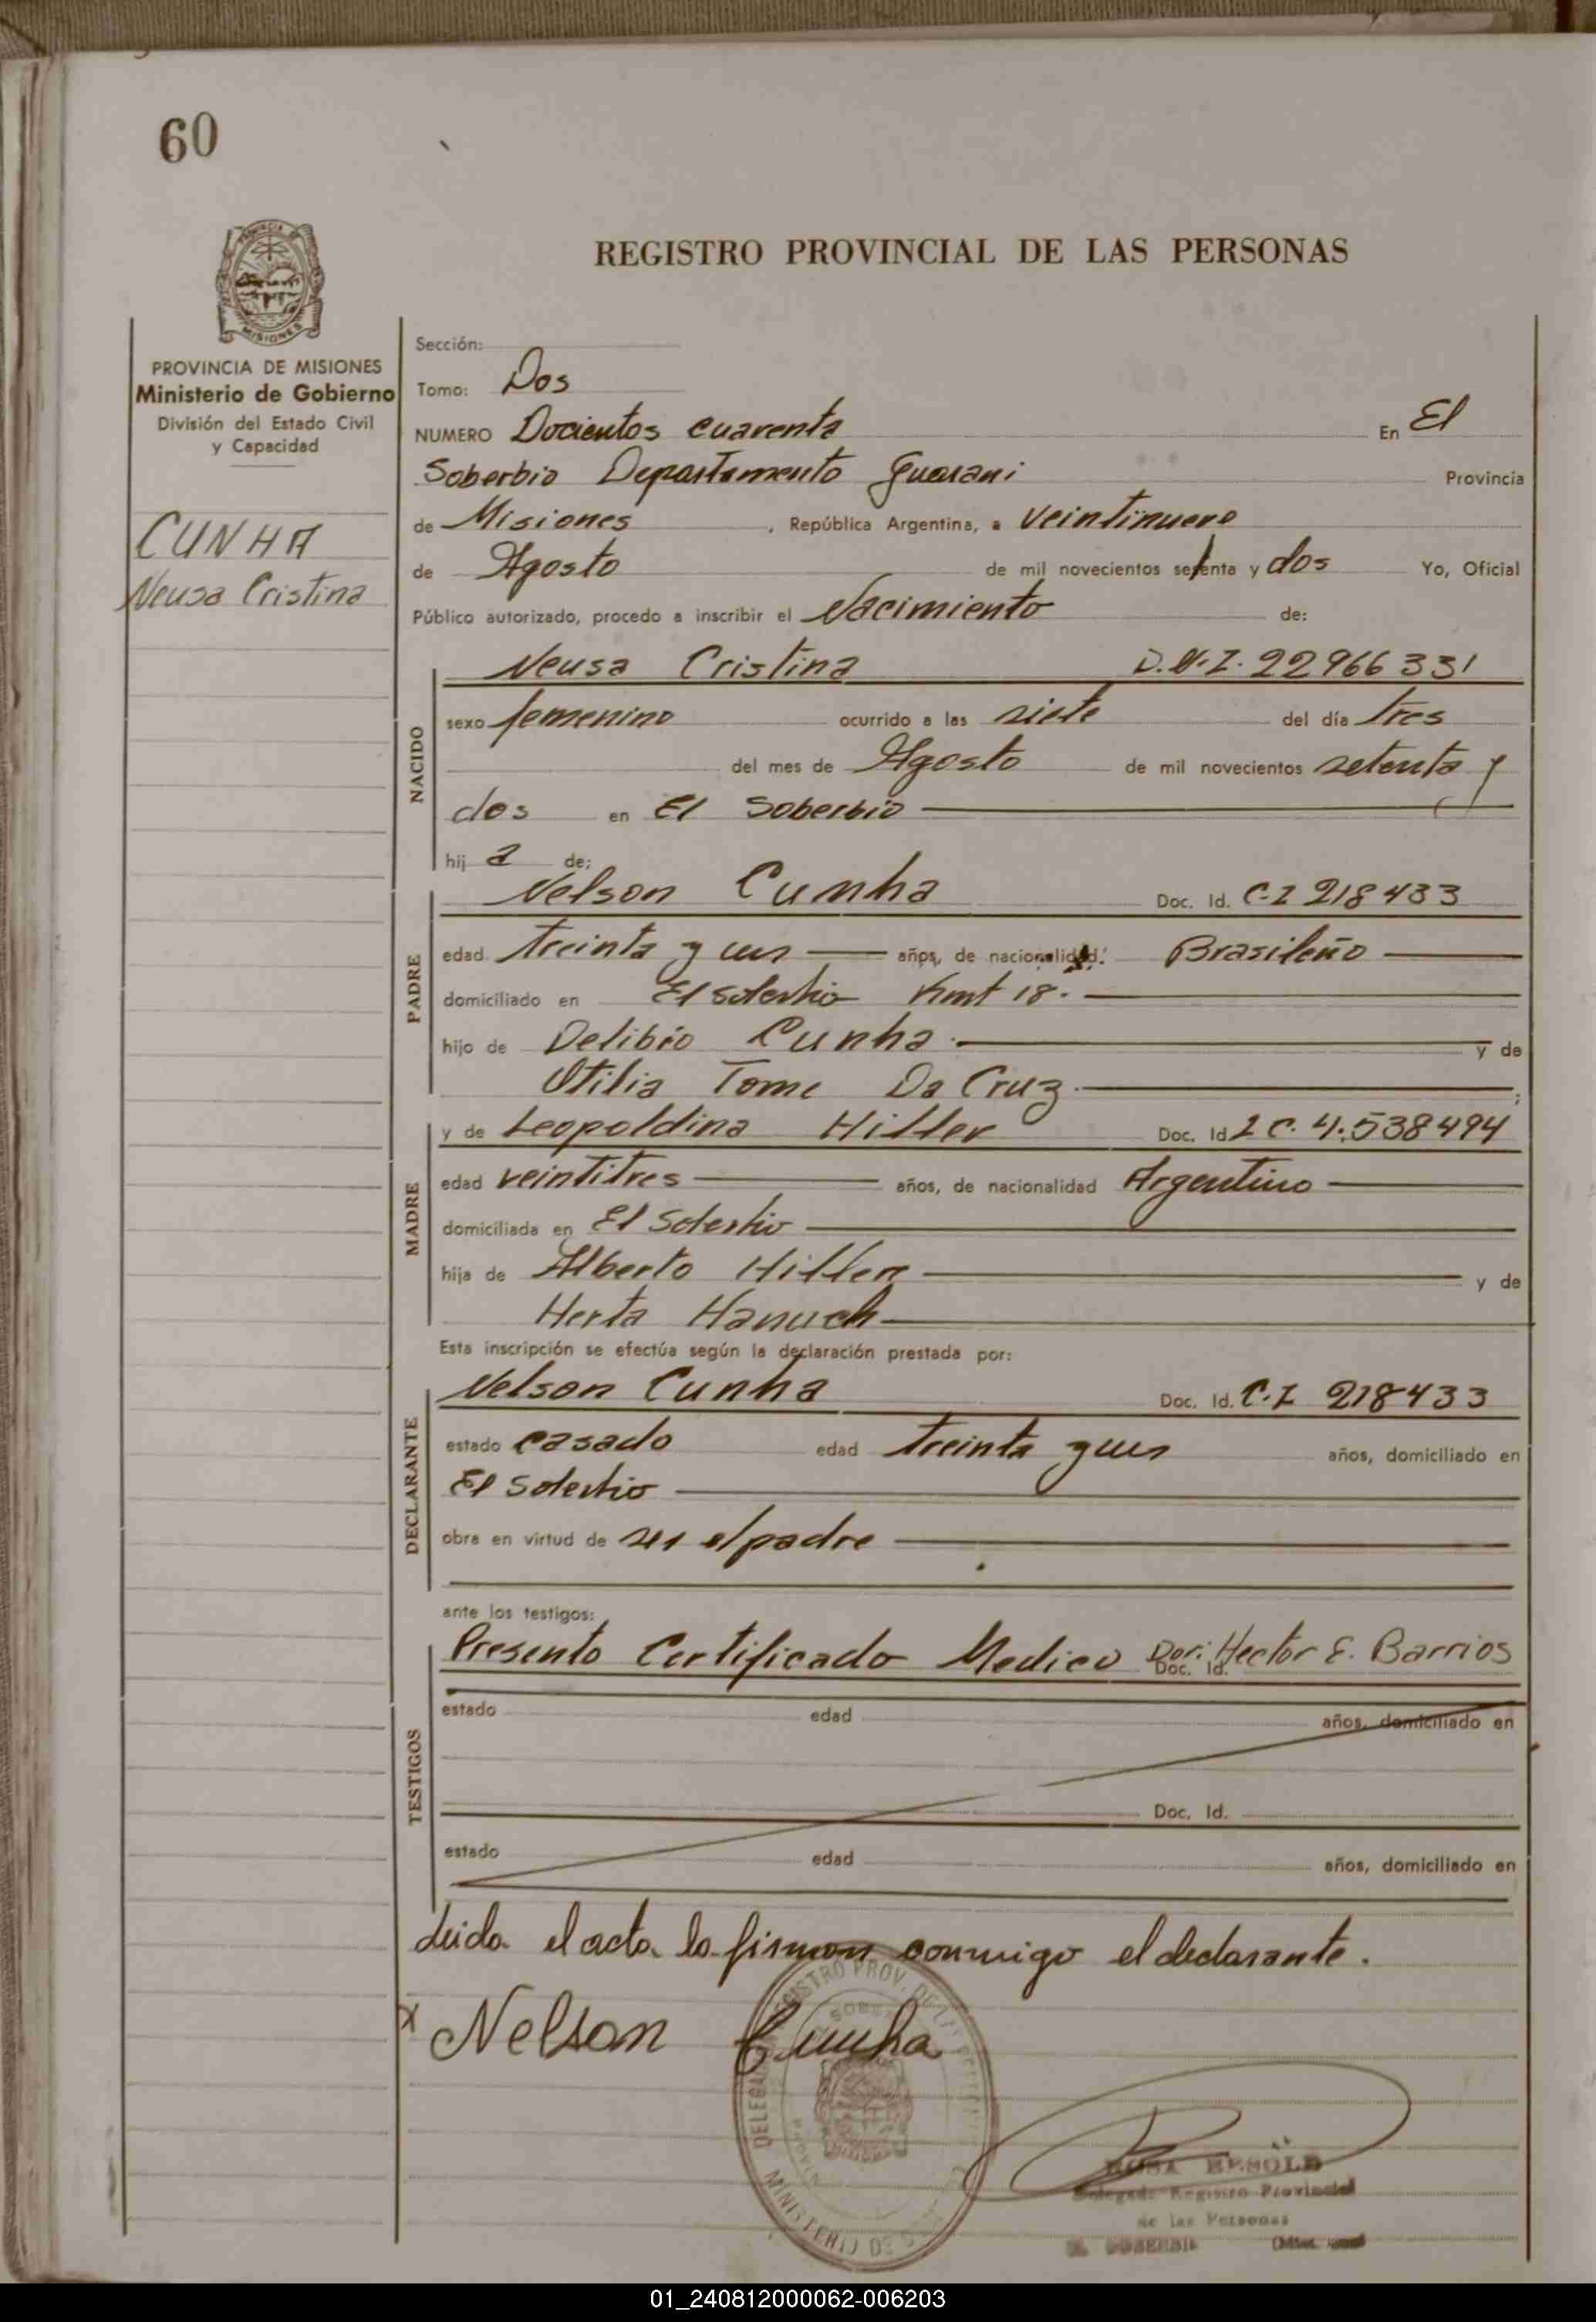 60
REGISTRO PROVINCIAL DE LAS PERSONAS
MISIONES
PROVINCIA DE MISIONES
Ministerio de Gobierno
División del Estado Civil
y Capacidad
CUNHA
Neusa Cristina
Sección:
Tomo: Dos
NUMERO Docientos cuarenta En El
Soberbio Departamento Guarani Provincia
de Misiones, República Argentina, a veintinueve
de Agosto de mil novecientos setenta y dos Yo, Oficial
Público autorizado, procedo a inscribir el Nacimiento de:
NACIDO
Neusa Cristina D.N.I. 22966331
sexo femenino ocurrido a las siete del día tres
del mes de Agosto de mil novecientos setenta y
dos en El Soberbio
hij a de:
PADRE
Nelson Cunha Doc. Id. C-I 218433
edad treinta y un años, de nacionalidad: Brasileño
domiciliado en El Soberbio Kmt 18.
hijo de Delibio Cunha y de
Otilia Tome Da Cruz ;
MADRE
y de Leopoldina Hiller Doc. Id L C. 4.538494
edad veintitres años, de nacionalidad Argentino
domiciliada en El Soberbio
hija de Alberto Hiller y de
Herta Hanuch
Esta inscripción se efectúa según la declaración prestada por:
DECLARANTE
Nelson Cunha Doc. Id. C.I 218433
estado casado edad treinta y un años, domiciliado en
El Soberbio
obra en virtud de ser el padre
ante los testigos:
TESTIGOS
Presento Certificado Medico Dor: Hector E. Barrios
Doc. Id.
estado edad años, domiciliado en
Doc. Id.
estado edad años, domiciliado en
Leida el acta la firman conmigo el declarante.
x Nelson Cunha
ROSA BESOLD
Delegada Registro Provincial
de las Personas
01_240812000062-006203